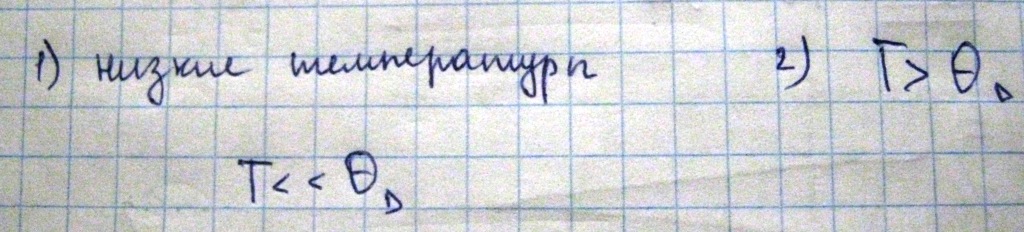 1) низкие температуры 2) T > θ_D
T << θ_D